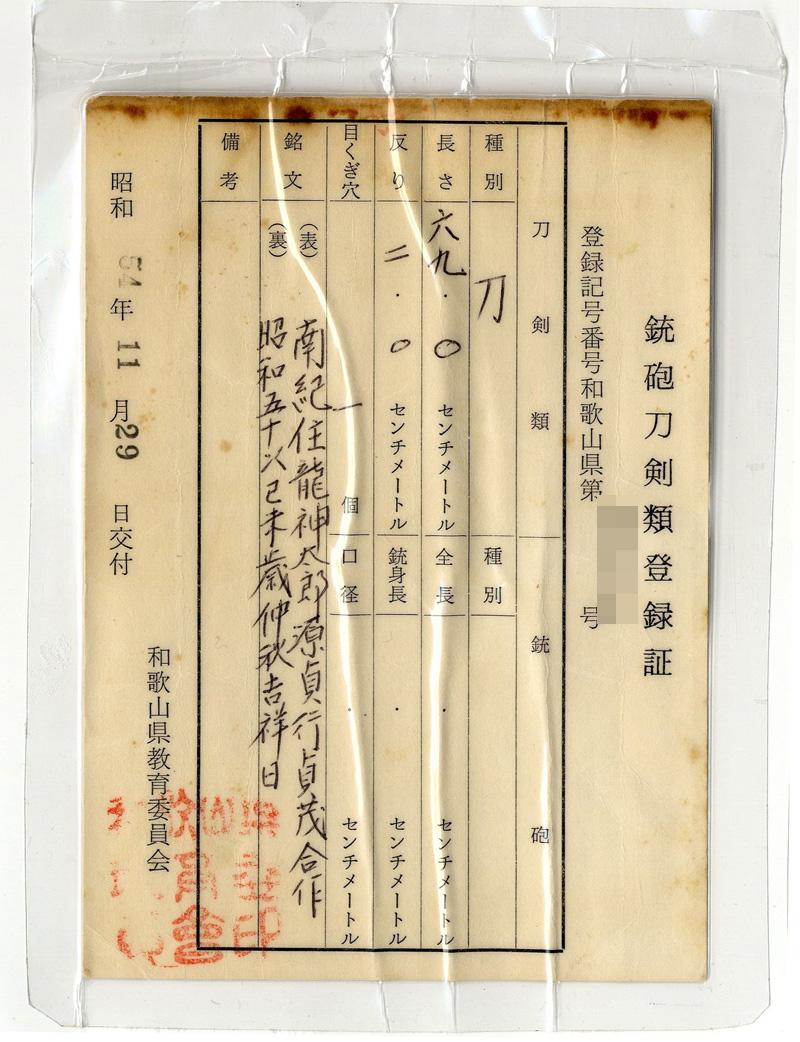 銃砲刀剣類登録証
登録記号番号和歌山県第 号
刀剣類 銃砲
種別 刀 種別
長さ 六九・〇 センチメートル 全長 ・ センチメートル
反り 二・〇 センチメートル 銃身長 ・ センチメートル
目くぎ穴 一個 口径 ・ センチメートル
銘文 (表) 南紀住龍神太郎源貞行貞茂合作
(裏) 昭和五十 己未歳仲秋吉祥日
備考
昭和54年11月29日交付
和歌山県教育委員会